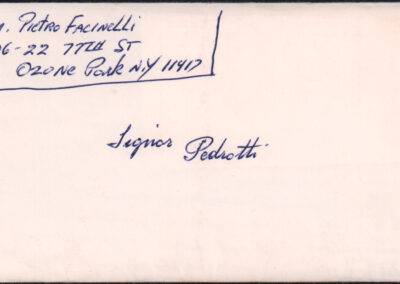 . Pietro Facinelli
6-22 77TH ST
Ozone Park N.Y 11417
Signor Pedrotti